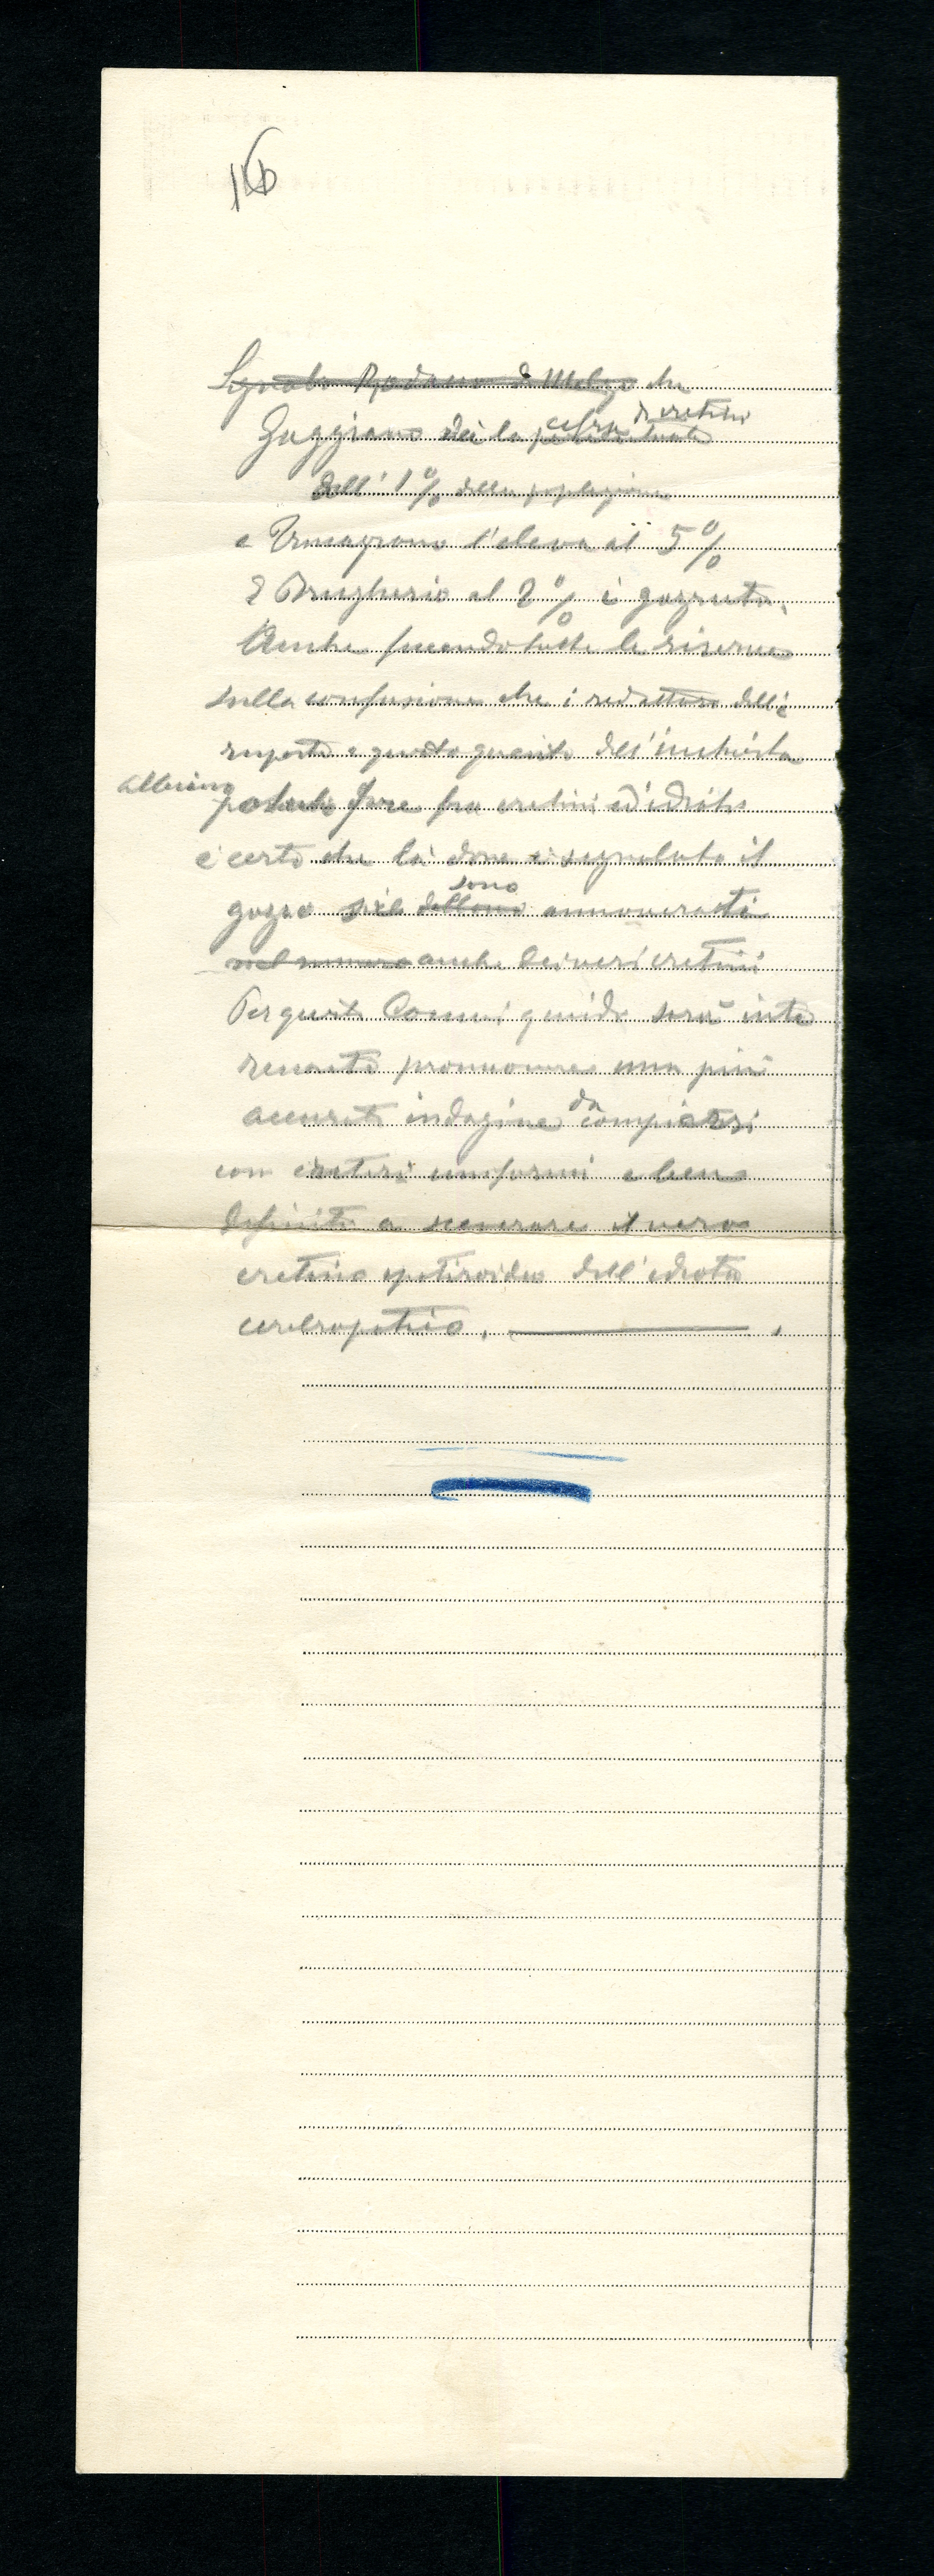 16
Segnalo Rodano di Melzo che
Zuggiano dei la cifra di cretini
dell' 1% della popolazione
e Vimagrono l'eleva al 5%
E Brugherio al 2% i gozzuti.
Anche facendo tutte le riserve
sulla confusione che i redattori delle
risposte a questo quesito dell'inchiesta
abbiano potuto fare fra cretini ed idioti
è certo che là dove è segnalato il
gozzo sono annoverati
nel numero anche dei veri cretini
Per questi Comuni quindi sarà inte
ressante promuovere una più
accurata indagine da compiersi
con criteri uniformi e bene
definiti a sceverare il vero
cretino ipotiroideo dall'idiota
cerebropatico.